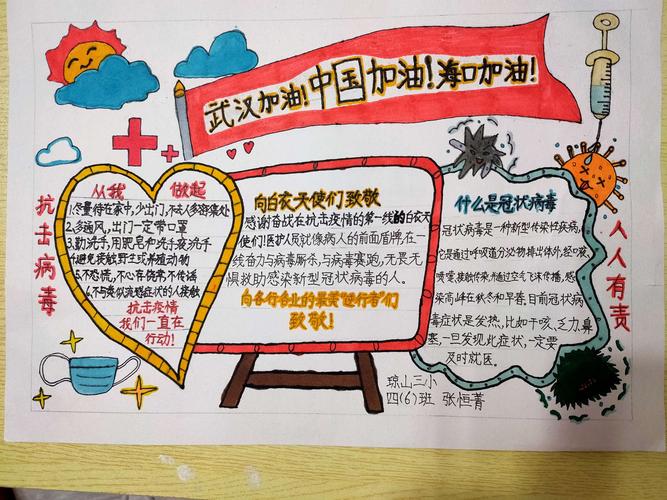 武汉加油!中国加油!海口加油!
抗击病毒
从我 做起
1.尽量待在家中,少出门,不去人多密集处
2.多通风,出门一定带口罩
3.勤洗手,用肥皂和洗手液洗手
4.避免接触野生或养殖动物
5.不恐慌,不信谣
6.不与类似流感症状的人接触
抗击疫情
我们一直在
行动!
向白衣天使们致敬
感谢奋战在抗击疫情的第一线的白衣天
使们!医护人员就像病人的前面盾牌,在一
线奋力与病毒厮杀,与病毒赛跑,无畏无
惧救助感染新型冠状病毒的人。
向各行各业的最美"逆行者"们
致敬!
什么是冠状病毒
冠状病毒是一种新型传染性疾病,
它是通过呼吸道分泌物排出体外,经
喷嚏,接触传染,并通过空气飞沫传播,感
染高峰在秋冬和早春.目前冠状病
毒症状是发热,比如干咳、乏力、鼻
塞,一旦发现此症状,一定要
及时就医。
人人有责
琼山三小
四(6)班 张恒菁